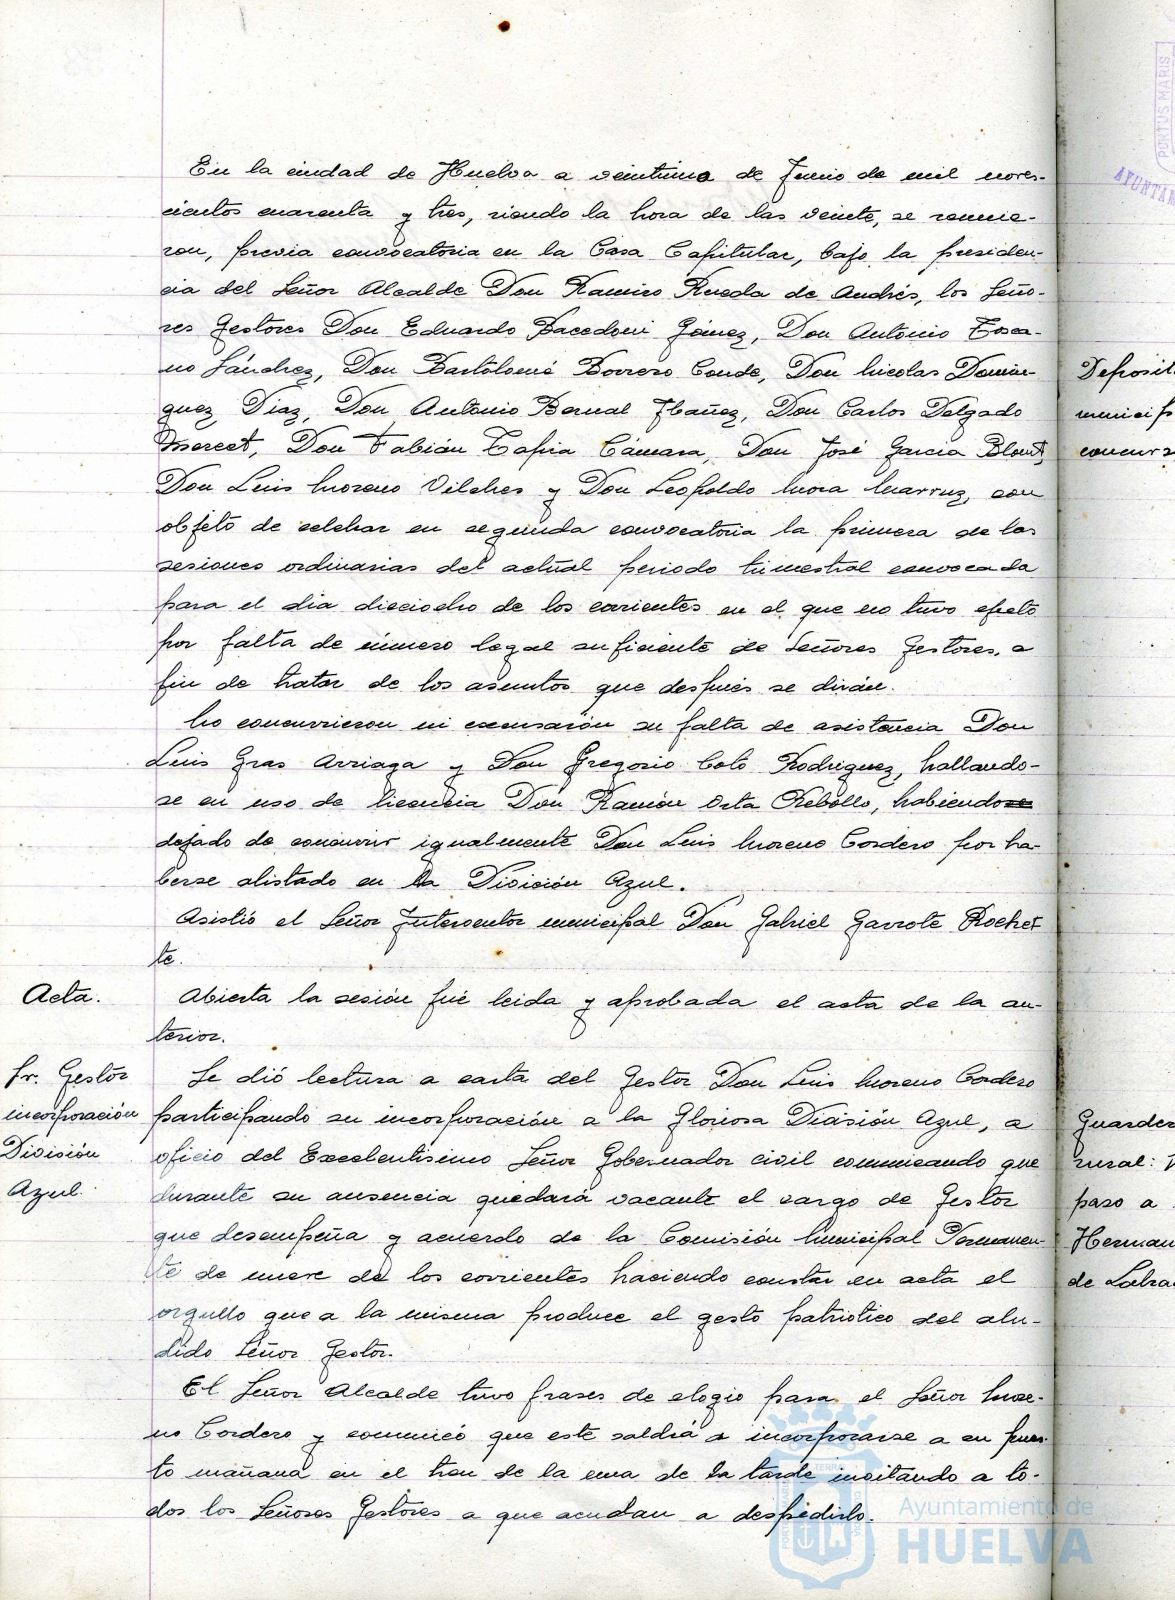 En la ciudad de Huelva a veintiuno de Junio de mil nove-
cientos cuarenta y tres, siendo la hora de las veinte, se reunie-
ron, previa convocatoria en la Casa Capitular, bajo la presiden-
cia del Señor Alcalde Don Ramiro Rueda de Andrés, los Seño-
res Gestores Don Eduardo Bacedoni Gómez, Don Antonio Tosca-
no Sánchez, Don Bartolomé Borrero Conde, Don Nicolas Domin-
guez Diaz, Don Antonio Bernal Ibañez, Don Carlos Delgado
Morcet, Don Fabián Tapia Cámara, Don José Garcia Blont,
Don Luis Moreno Vilches y Don Leopoldo Mora Marruz, con
objeto de celebrar en segunda convocatoria la primera de las
sesiones ordinarias del actual periodo trimestral convocada
para el dia dieciocho de los corrientes en el que no tuvo efecto
por falta de número legal suficiente de Señores Gestores, a
fin de tratar de los asuntos que después se dirán.
No concurrieron ni excusarón su falta de asistencia Don
Luis Gras Arriaga y Don Gregorio Coto Rodriguez, hallando-
se en uso de licencia Don Ramón Orta Rebollo, habiendose
dejado de concurrir igualmente Don Luis Moreno Cordero por ha-
berse alistado en la División Azul.
Asistió el Señor Interventor municipal Don Gabriel Garrote Rochet-
te.
Acta.
Abierta la sesión fué leida y aprobada el acta de la an-
terior.
Sr. Gestor
incorporación
División
Azul.
Se dió lectura a carta del Gestor Don Luis Moreno Cordero
participando su incorporación a la Gloriosa División Azul, a
oficio del Excelentisimo Señor Gobernador civil comunicando que
durante su ausencia quedará vacante el cargo de Gestor
que desempeña y acuerdo de la Comisión Municipal Permanen-
te de nueve de los corrientes haciendo constar en acta el
orgullo que a la misma produce el gesto patriótico del alu-
dido Señor Gestor.
El Señor Alcalde tuvo frases de elogio para el Señor More-
no Cordero y comunicó que este saldrá a incorporarse a su pues-
to mañana en el tren de la una de la tarde invitando a to-
dos los Señores Gestores a que acudan a despedirlo.
Deposit
municip
concurs
Guarder
rural:
paso a
Herman
de Labra
PORTUS MARIS
AYUNTAM
Ayuntamiento de
HUELVA